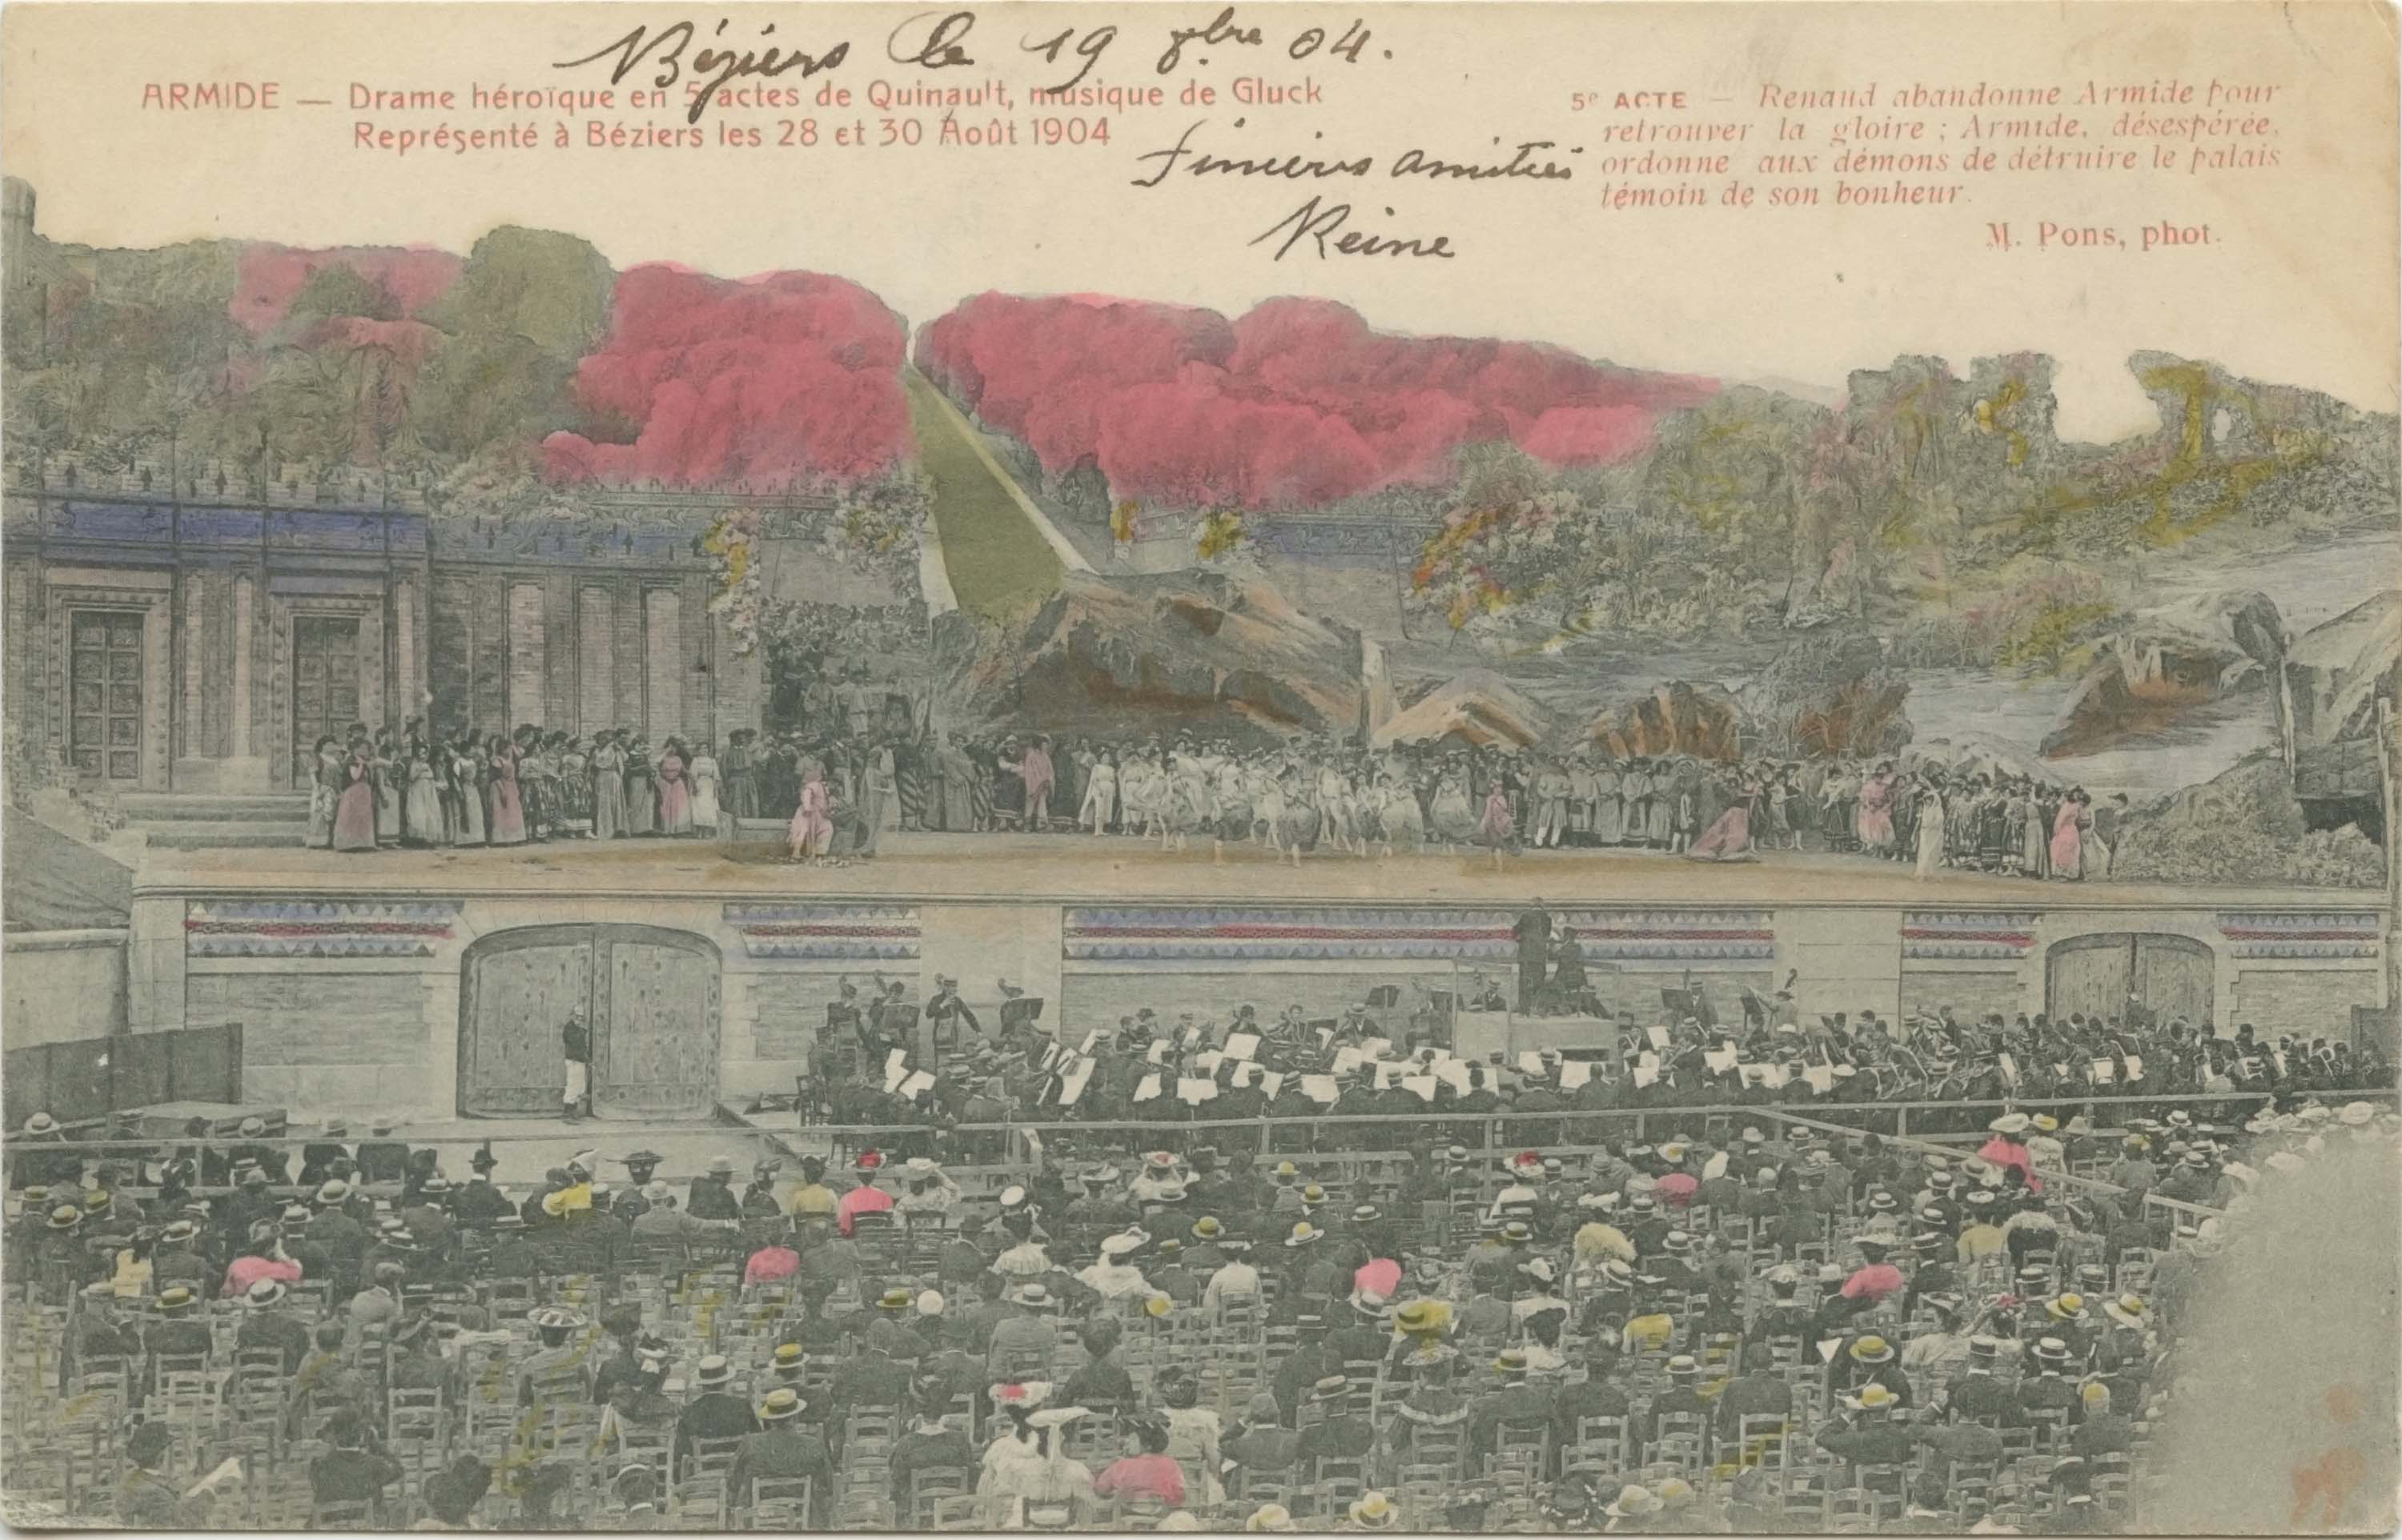 Béziers le 19 9bre 04.
ARMIDE — Drame héroïque en 5 actes de Quinault, musique de Gluck
Représenté à Béziers les 28 et 30 Août 1904
5e ACTE — Renaud abandonne Armide pour
retrouver la gloire ; Armide, désespérée,
ordonne aux démons de détruire le palais
témoin de son bonheur.
M. Pons, phot.
amitiés
Reine